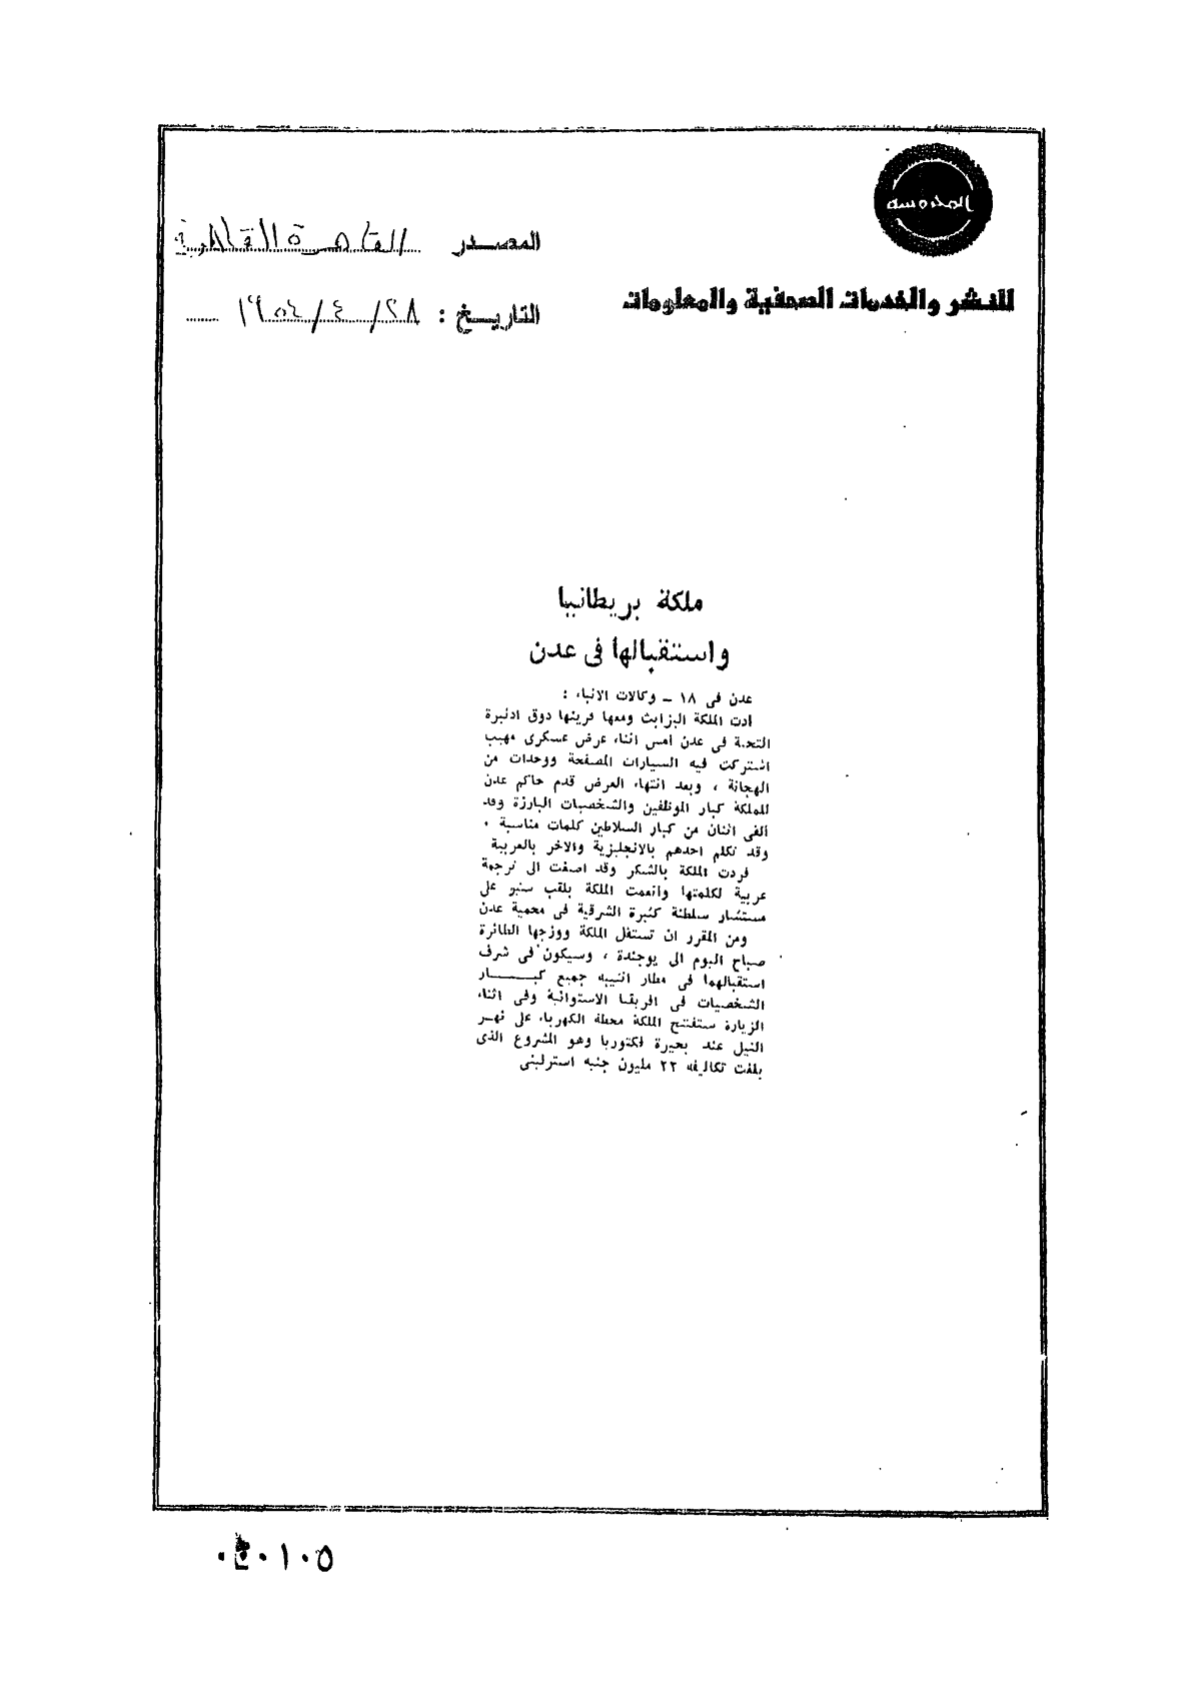 المحروسة
للنشر والخدمات الصحفية والمعلومات
المصدر القاهرة القاهرية
التاريخ : ٢٨/٤/١٩٥٤
ملكة بريطانيا
واستقبالها فى عدن
عدن فى ١٨ ــ وكالات الانباء :
ادت الملكة اليزابث ومعها قرينها دوق ادنبرة
التحية فى عدن امس اثناء عرض عسكرى مهيب
اشتركت فيه السيارات المصفحة ووحدات من
الهجانة ، وبعد انتهاء العرض قدم حاكم عدن
للملكة كبار الموظفين والشخصيات البارزة وقد
ألقى اثنان من كبار السلاطين كلمات مناسبة .
وقد تكلم احدهم بالانجليزية والاخر بالعربية
فردت الملكة بالشكر وقد اصغت الى ترجمة
عربية لكلمتها وانعمت الملكة بلقب سير على
مستشار سلطنة كثيرة الشرقية فى محمية عدن
ومن المقرر ان تستقل الملكة ووزجها الطائرة
صباح اليوم الى يوجندة ، وسيكون فى شرف
استقبالهما فى مطار انتيبه جميع كبـــــار
الشخصيات فى افريقا الاستوائية وفى اثناء
الزيارة ستفتتح الملكة محطة الكهرباء على نهـر
النيل عند بحيرة فكتوريا وهو المشروع الذى
بلغت تكاليفه ٢٢ مليون جنيه استرلينى